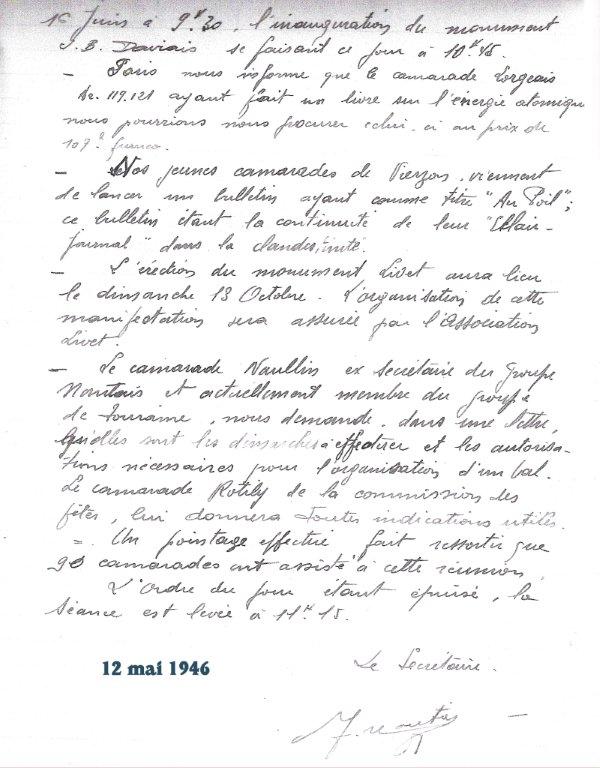 16 Juin à 9h30, l'inauguration du monument
J.B. Daviais se faisant ce jour à 10h45.
- Paris nous informe que le camarade Lorgeais
Ar. 119.121 ayant fait un livre sur l'énergie atomique
nous pourrions nous procurer celui-ci au prix de
107 francs.
- Nos jeunes camarades de Vierzon, viennent
de lancer un bulletin ayant comme titre "Au Poil";
ce bulletin étant la continuité de leur
journal" dans la clandestinité.
- L'érection du monument Livet aura lieu
le dimanche 13 Octobre. L'organisation de cette
manifestation sera assurée par l'Association
Livet.
- Le camarade Naullin ex Secrétaire du Groupe
Nantais et actuellement membre du groupe
de Touraine, nous demande, dans une lettre,
Quelles sont les démarches à effectuer et les autorisa-
tions nécessaires pour l'organisation d'un bal.
Le camarade Rotily de la commission des
fêtes, lui donnera toutes indications utiles.
- Un pointage effectué fait ressortir que
90 camarades ont assisté à cette réunion.
L'Ordre du jour étant épuisé, la
Séance est levée à 11h15.
12 mai 1946
Le Secrétaire.